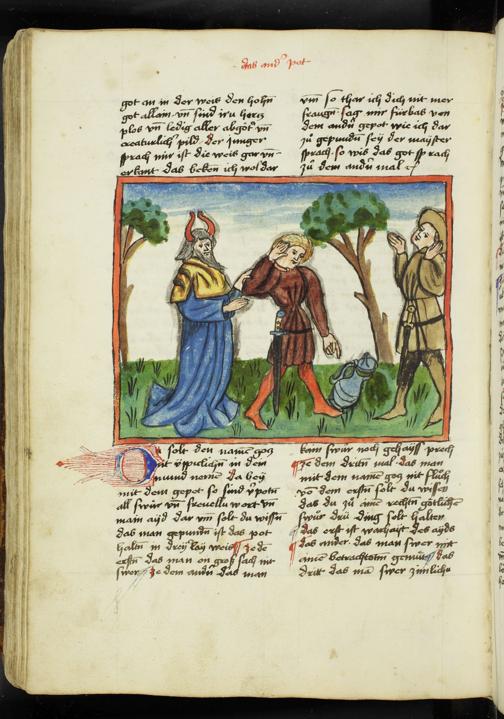 das and' pot
got an in der weis den hohn
got allain vn̄ sind irn hercz
plos vn̄ ledig aller abgöt vn̄
creaturlich pild der Junger
sprach mir ist die weis gar vn̄
erkant das beken ich wol dar
vm̄ so thar ich dich nit mer
fragen sag mir fürbas von
dem andn̄ gepot wie ich dar
zu gepundn̄ sey der mayster
sprach so wis das got sprach
zu dem andn̄ mal
Du solt den namē gocz
nit ÿppiclichn̄ in dein
mund nemē da bey
mit dem gepot so sind vpotn̄
all swür vn̄ frevellu wort vn̄
main ayd dar vm̄ solt du wissn̄
das man gepundn̄ ist das pot
haltn̄ in dreÿ lay weis Ze dē
erstn̄ das man on groß sach nit
swer Ze dem andn̄ das man
kain swur noch gehayss prech
Ze dem dritn̄ mal das man
mit dem namē gocz nit fluch
vō dem erstn̄ solt du wissen
das du zu ainē rechtn̄ götlichē
swür drü ding solt haltēn
das erst ist warhayt des ayds
das ander das man swer mit
ainē betrachtotm̄ gemüt das
drit das mā swer zimlichn̄